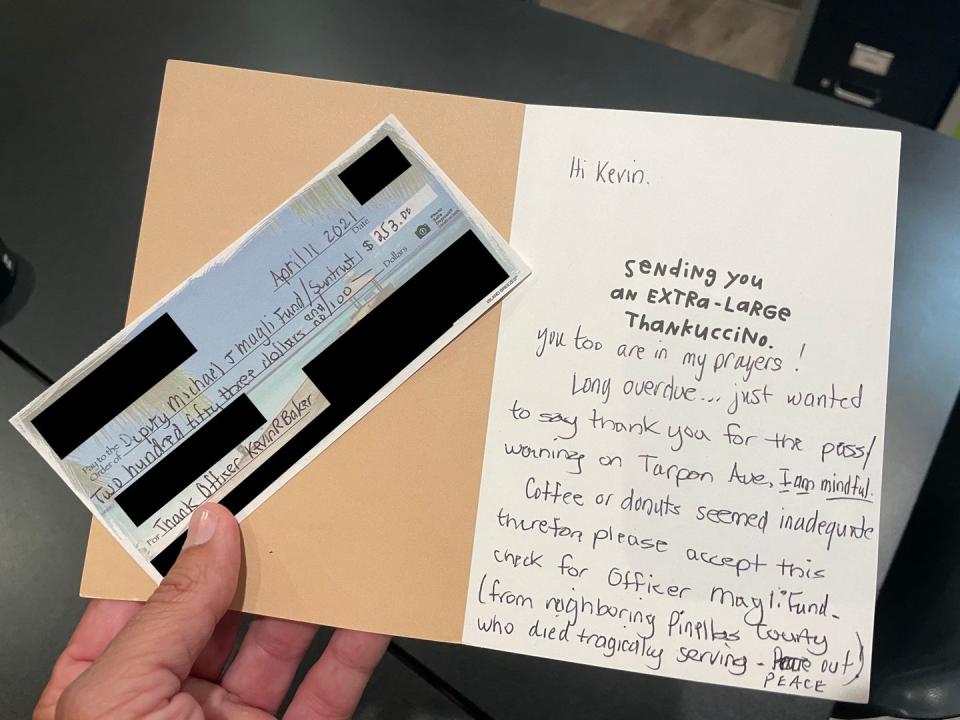 April 11 2021
Date
Pay to the
Order of Deputy Michael J Magli Fund/Suntrust $ 253.00
Two hundred fifty three dollars and no/100 Dollars
For Thank Officer Kevin R Baker
Hi Kevin.
SENDING YOU
AN EXTRA-LARGE
THANKUCCINO.
you too are in my prayers!
Long overdue... just wanted
to say thank you for the pass/
warning on Tarpon Ave, I am mindful.
Coffee or donuts seemed inadequate
therefor please accept this
check for Officer Magli Fund.
(from neighboring Pinellas County
who died tragically serving - out)
PEACE